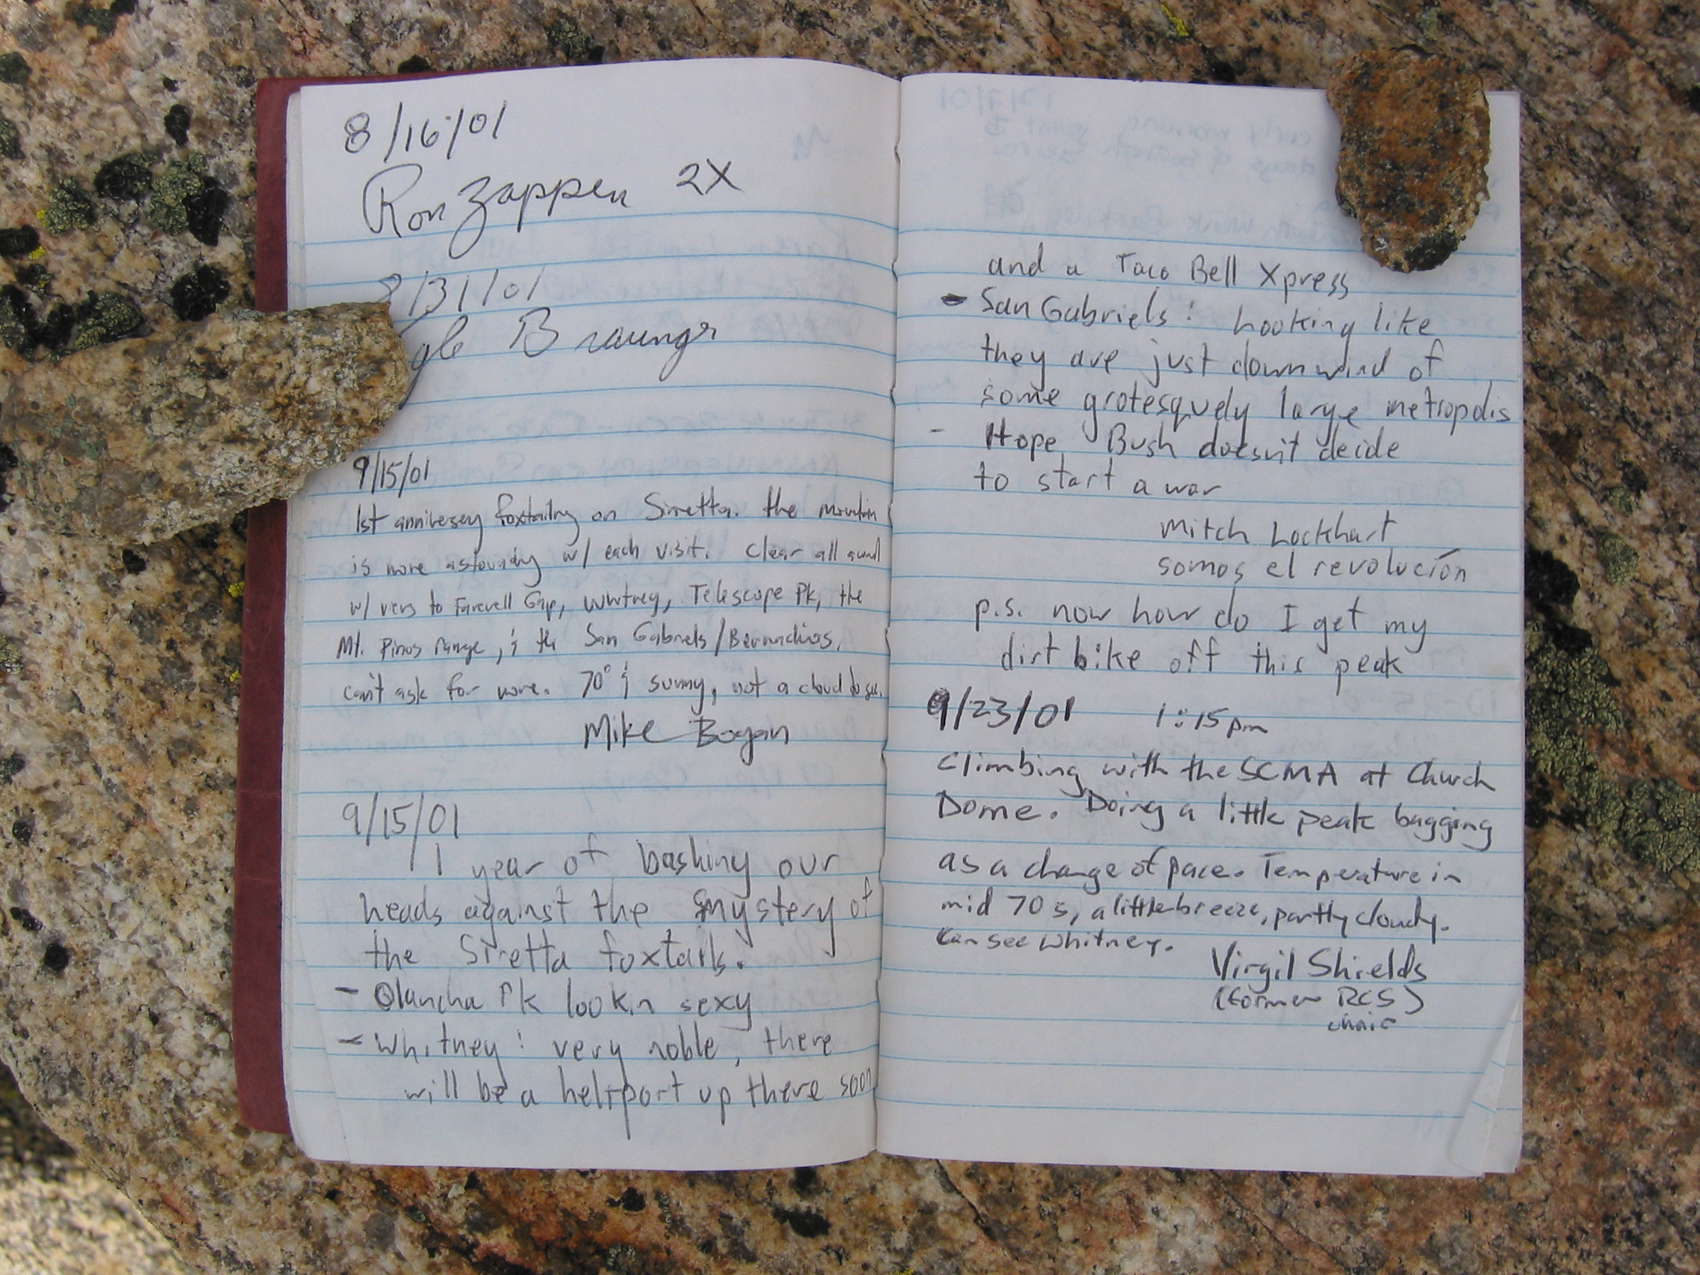 8/16/01
Ron Zappen 2X
8/31/01
9/15/01
1st anniversery foxtailing on Siretta. The mountain
is more astounding w/ each visit. Clear all around
w/ views to Farewell Gap, Whitney, Telescope Pk, the
Mt. Pinos range, & the San Gabriels/Bernardinos.
can't ask for more. 70° & sunny, not a cloud to see.
Mike Bogan
9/15/01
1 year of bashing our
heads against the mystery of
the Siretta foxtails.
- Olancha Pk lookn sexy
- Whitney: very noble, there
will be a heliport up there soon
and a Taco Bell Xpress
- San Gabriels: Looking like
they are just downwind of
some grotesquely large metropolis
- Hope Bush doesn't decide
to start a war
Mitch Lockhart
somos el revolución
p.s. now how do I get my
dirt bike off this peak
9/23/01 1:15pm
Climbing with the SCMA at Church
Dome. Doing a little peak bagging
as a change of pace. Temperature in
mid 70s, a little breeze, partly cloudy.
Can see Whitney.
Virgil Shields
(former RCS)
chair